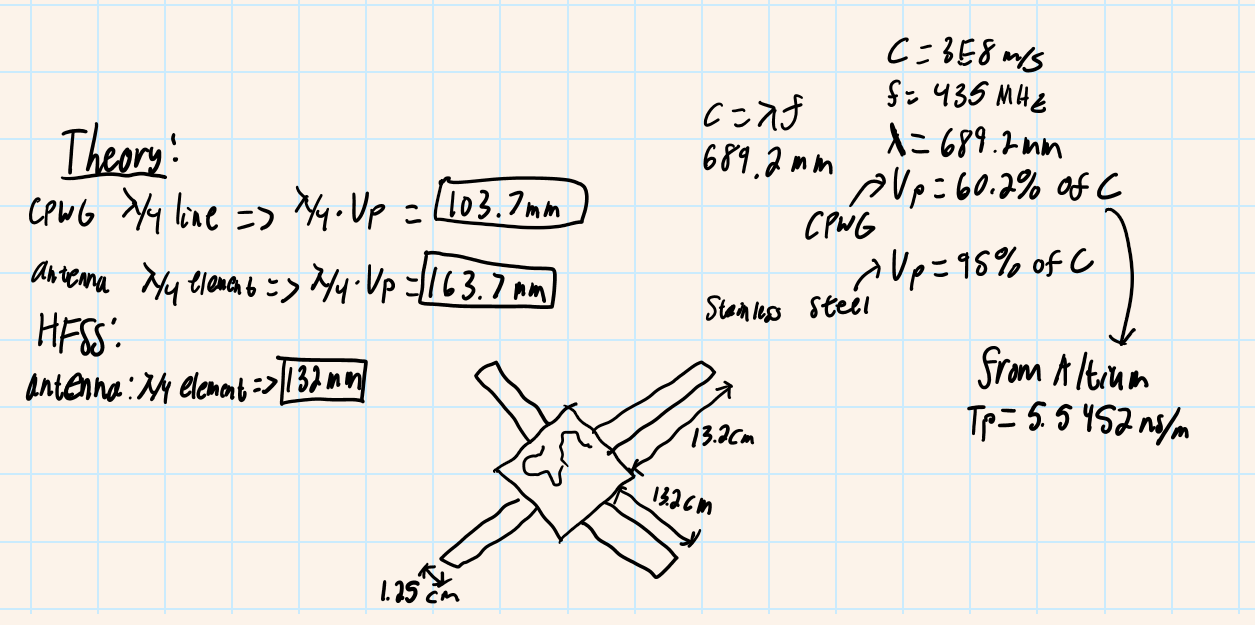 Theory:
CPWG λ/4 line => λ/4 · Vp = 103.7mm
antenna λ/4 element => λ/4 · Vp = 163.7 mm
HFSS:
antenna: λ/4 element => 132 mm
C = λf
689.2 mm
C = 3E8 m/s
f = 435 MHz
λ = 689.2mm
Vp = 60.2% of C
CPWG
Vp = 95% of C
Stainless steel
from Altium
Tp = 5.5452 ns/m
13.2cm
13.2cm
1.25 cm